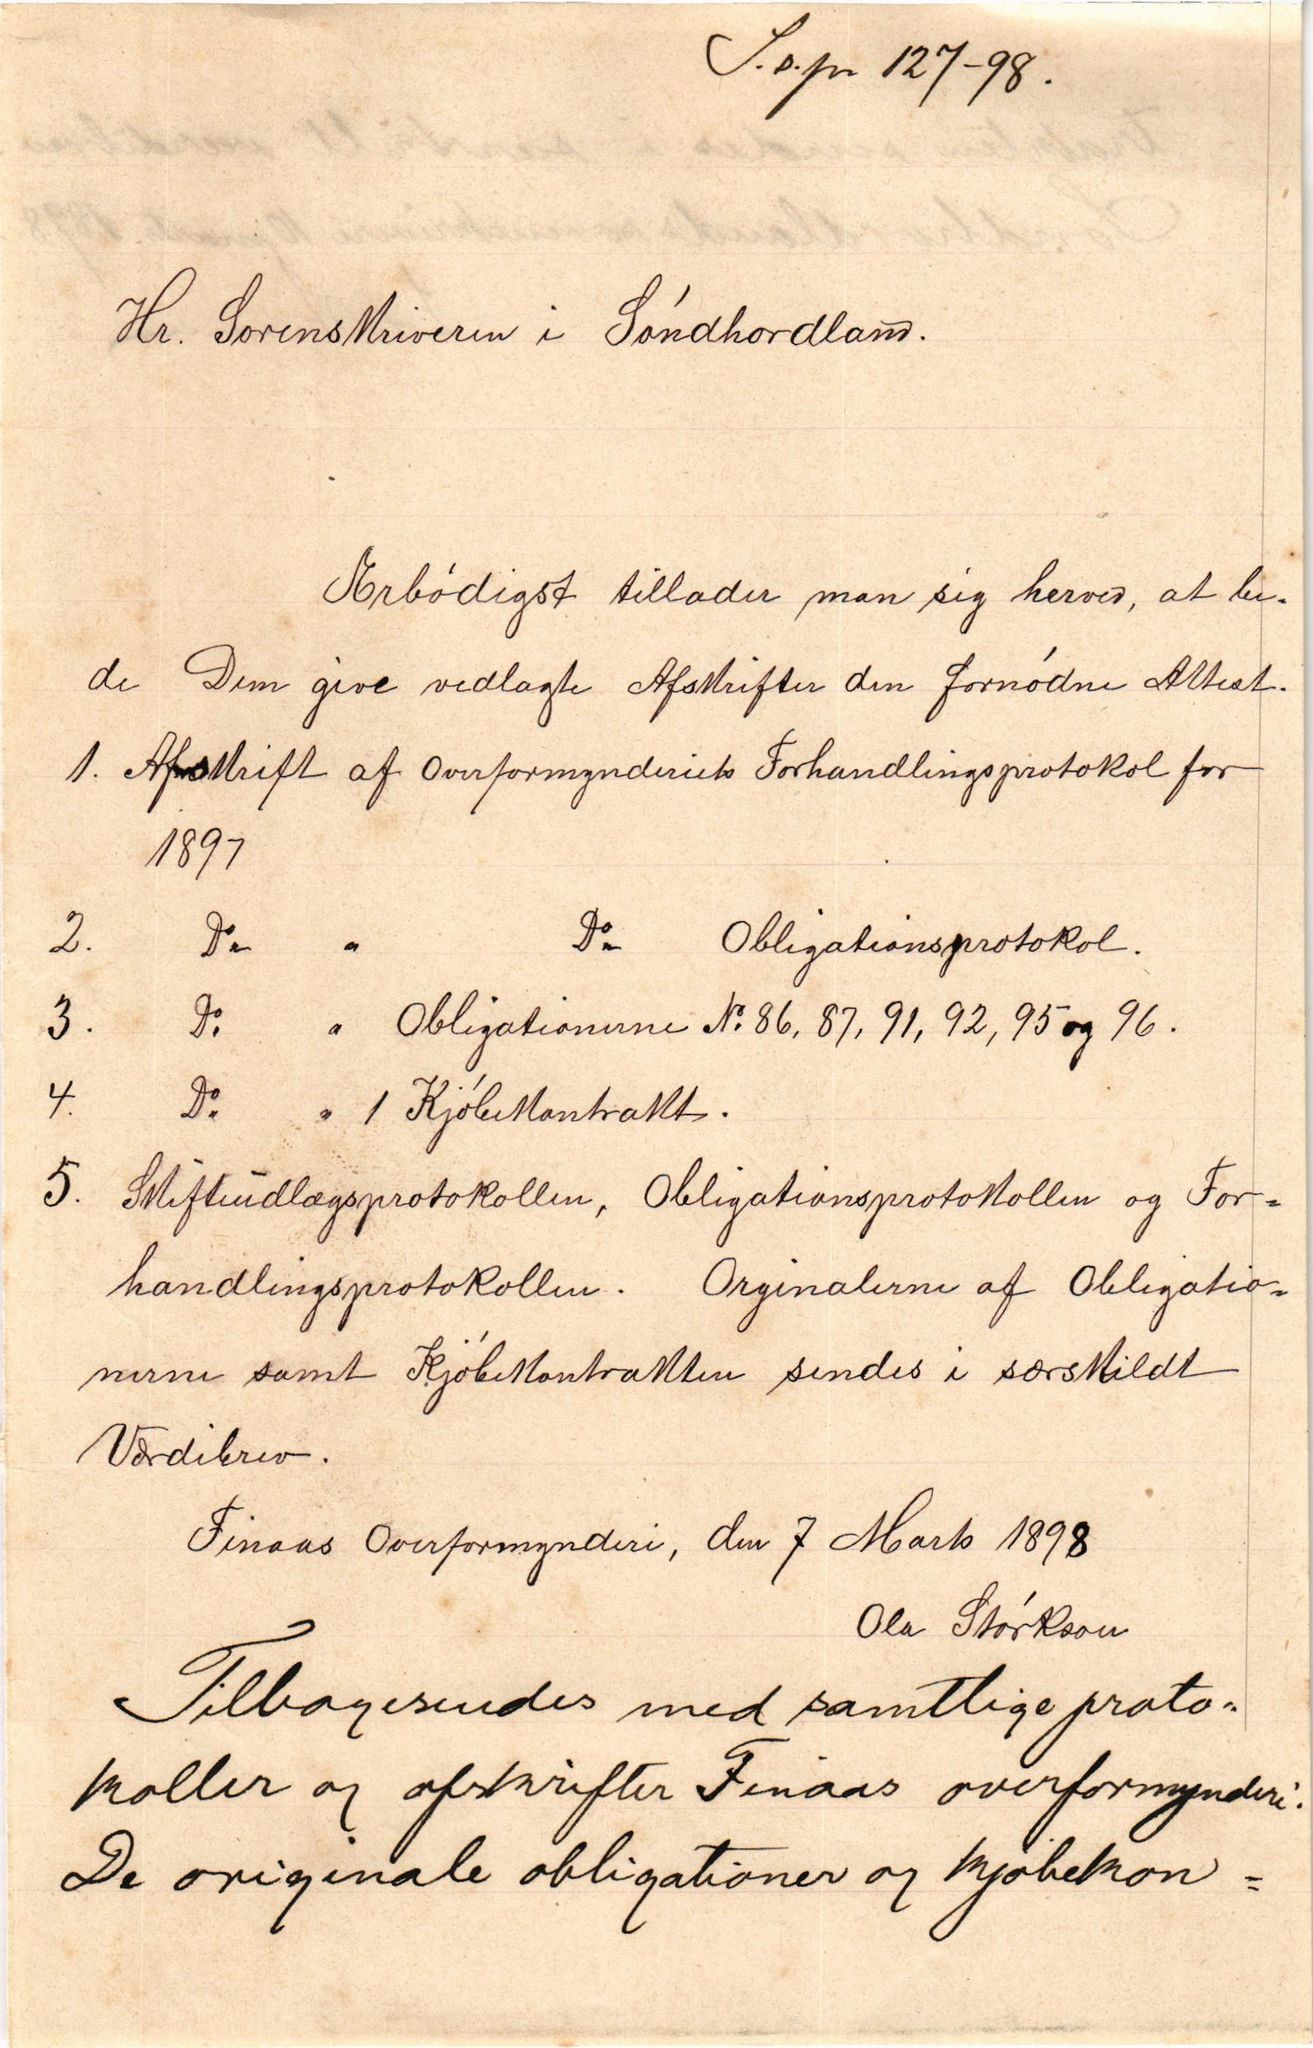 S.s.pr 127-98.
Hr. Sorenskriveren i Söndhordland.
Ærbödigst tillader man sig herved, at be-
de Dem give vedlagte Afskrifter den fornödne Attest.
1. Afskrift af Overformynderiets Forhandlingsprotokol for
1897
2. Do " Do Obligationsprotokol.
3. Do " Obligationerne No. 86, 87, 91, 92, 95 og 96.
4. Do " 1 Kjöbekontrakt.
5. Skifteudlægsprotokollen, Obligationsprotokollen og For=
handlingsprotokollen. Orginalerne af Obligatio=
nerne samt Kjöbekontrakten sendes i særskildt
Værdibrev.
Finaas Overformynderi, den 7 Marts 1898
Ola Störkson
Tilbagesendes med samtlige proto=
koller og afskrifter Finaas overformynderi.
De originale obligationer og kjöbekon=